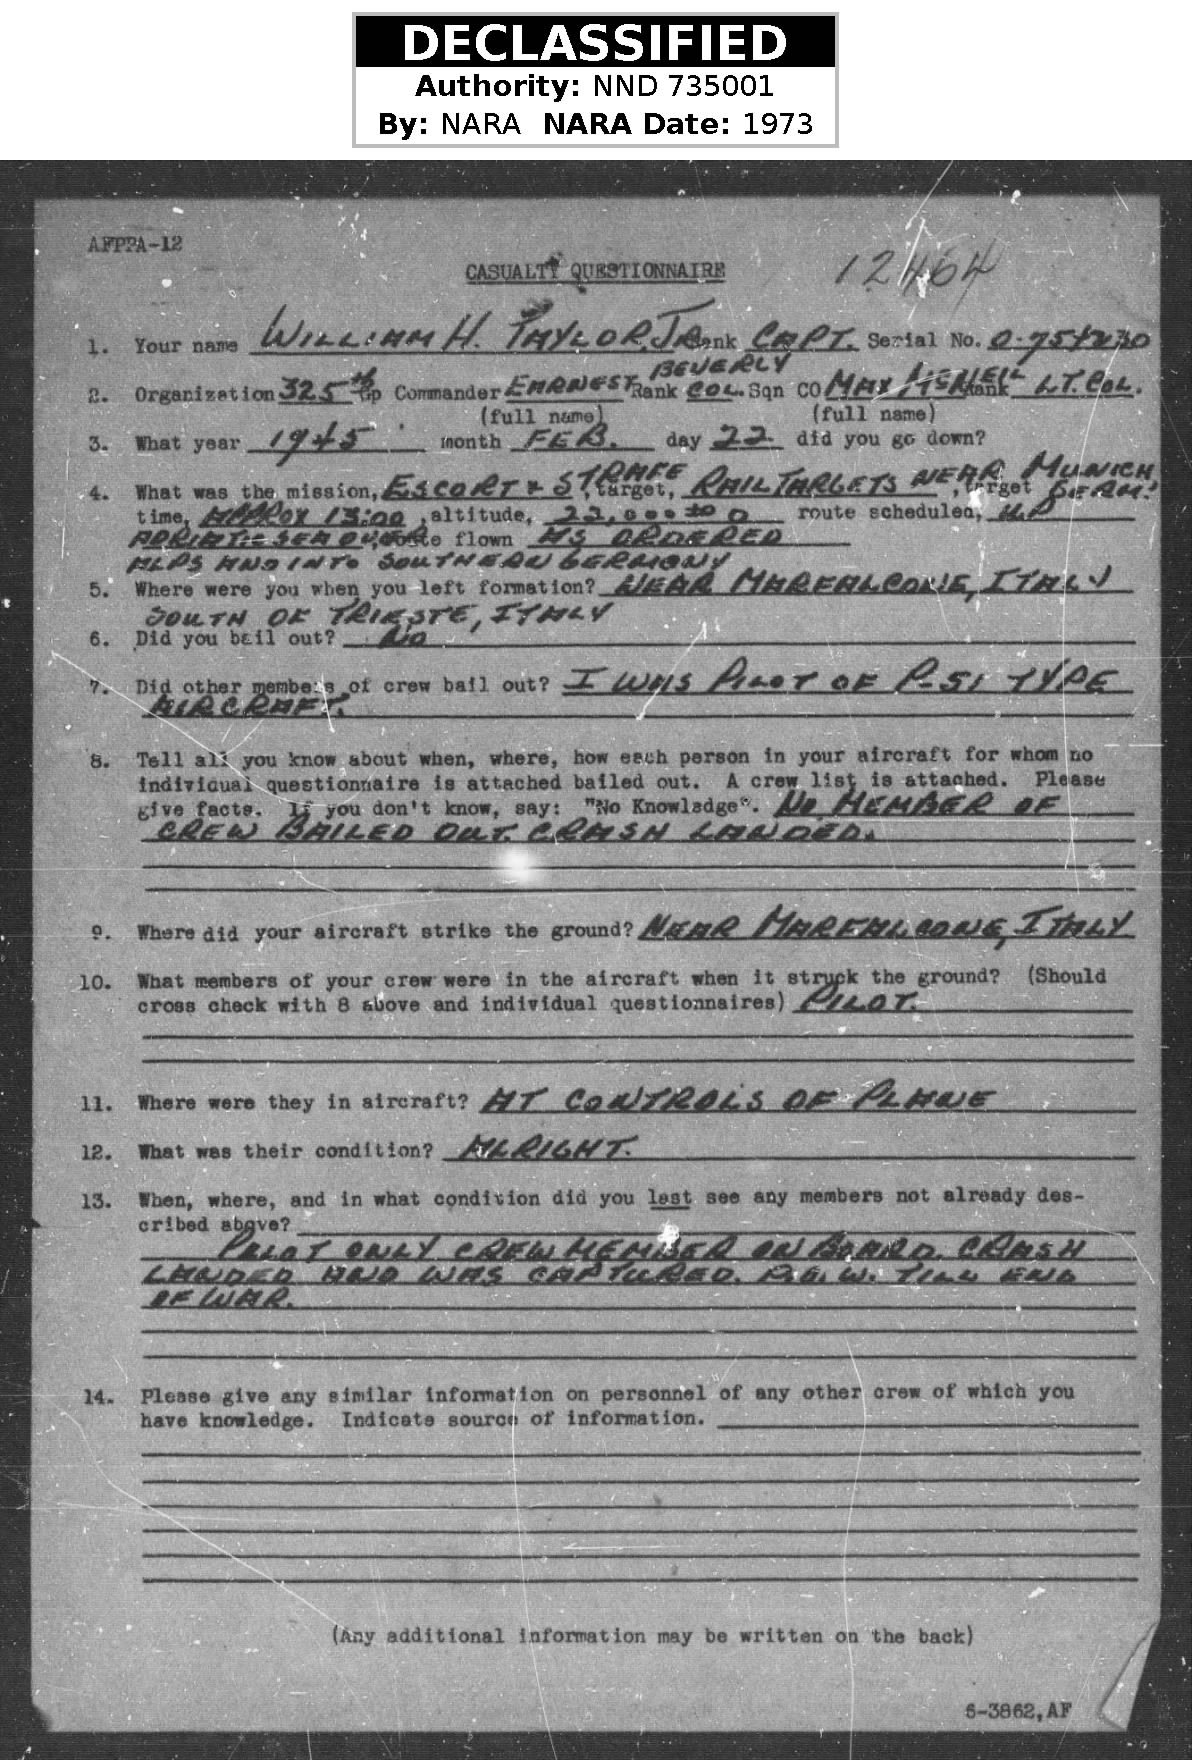 DECLASSIFIED
Authority: NND 735001
By: NARA NARA Date: 1973
AFPPA-12
CASUALTY QUESTIONNAIRE
12464
1. Your name WILLIAM H. TAYLOR, JR. Rank CAPT. Serial No.
BEVERLY
2. Organization 325th Gp Commander EARNEST Rank COL. Sqn CO MAX McNEIL Rank LT. COL.
(full name) (full name)
3. What year 1945 month FEB. day 22 did you go down?
4. What was the mission, ESCORT & STRAFE, target, RAIL TARGETS NEAR MUNICH, target GERM.
time, APPROX 13:00, altitude, 22,000 to 0 route scheduled, UP
ADRIATIC SEA OVER, route flown AS ORDERED
ALPS AND INTO SOUTHERN GERMONY
5. Where were you when you left formation? NEAR MARFALCONE, ITALY
SOUTH OF TRIESTE, ITALY
6. Did you bail out? NO
7. Did other members of crew bail out? I WAS PILOT OF P-51 TYPE
AIRCRAFT.
8. Tell all you know about when, where, how each person in your aircraft for whom no
individual questionnaire is attached bailed out. A crew list is attached. Please
give facts. If you don't know, say: "No Knowledge". NO MEMBER OF
CREW BAILED OUT. CRASH LANDED.
9. Where did your aircraft strike the ground? NEAR MARFALCONE, ITALY
10. What members of your crew were in the aircraft when it struck the ground? (Should
cross check with 8 above and individual questionnaires) PILOT.
11. Where were they in aircraft? AT CONTROLS OF PLANE
12. What was their condition? ALRIGHT.
13. When, where, and in what condition did you last see any members not already des-
cribed above?
PILOT ONLY CREW MEMBER ON BOARD. CRASH
LANDED AND WAS CAPTURED. P.O.W. TILL END
OF WAR.
14. Please give any similar information on personnel of any other crew of which you
have knowledge. Indicate source of information.
(Any additional information may be written on the back)
6-3862,AF